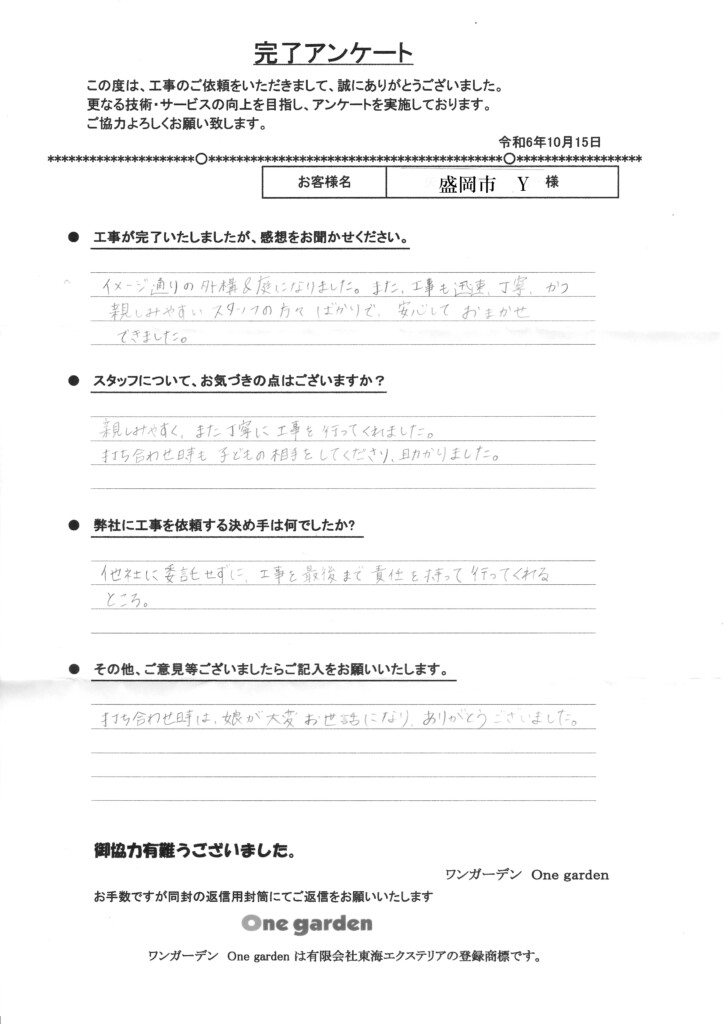 完了アンケート
この度は、工事のご依頼をいただきまして、誠にありがとうございました。
更なる技術・サービスの向上を目指し、アンケートを実施しております。
ご協力よろしくお願い致します。
令和6年10月15日
お客様名 盛岡市 Y 様
● 工事が完了いたしましたが、感想をお聞かせください。
イメージ通りの外構&庭になりました。また、工事も迅速、丁寧、かつ
親しみやすいスタッフの方々ばかりで、安心しておまかせ
できました。
● スタッフについて、お気づきの点はございますか?
親しみやすく、また丁寧に工事を行ってくれました。
打ち合わせ時も子どもの相手をしてくださり、助かりました。
● 弊社に工事を依頼する決め手は何でしたか?
他社に委託せずに、工事を最後まで責任を持って行ってくれる
ところ。
● その他、ご意見等ございましたらご記入をお願いいたします。
打ち合わせ時は、娘が大変お世話になり、ありがとうございました。
御協力有難うございました。
ワンガーデン One garden
お手数ですが同封の返信用封筒にてご返信をお願いいたします
One garden
ワンガーデン One garden は有限会社東海エクステリアの登録商標です。